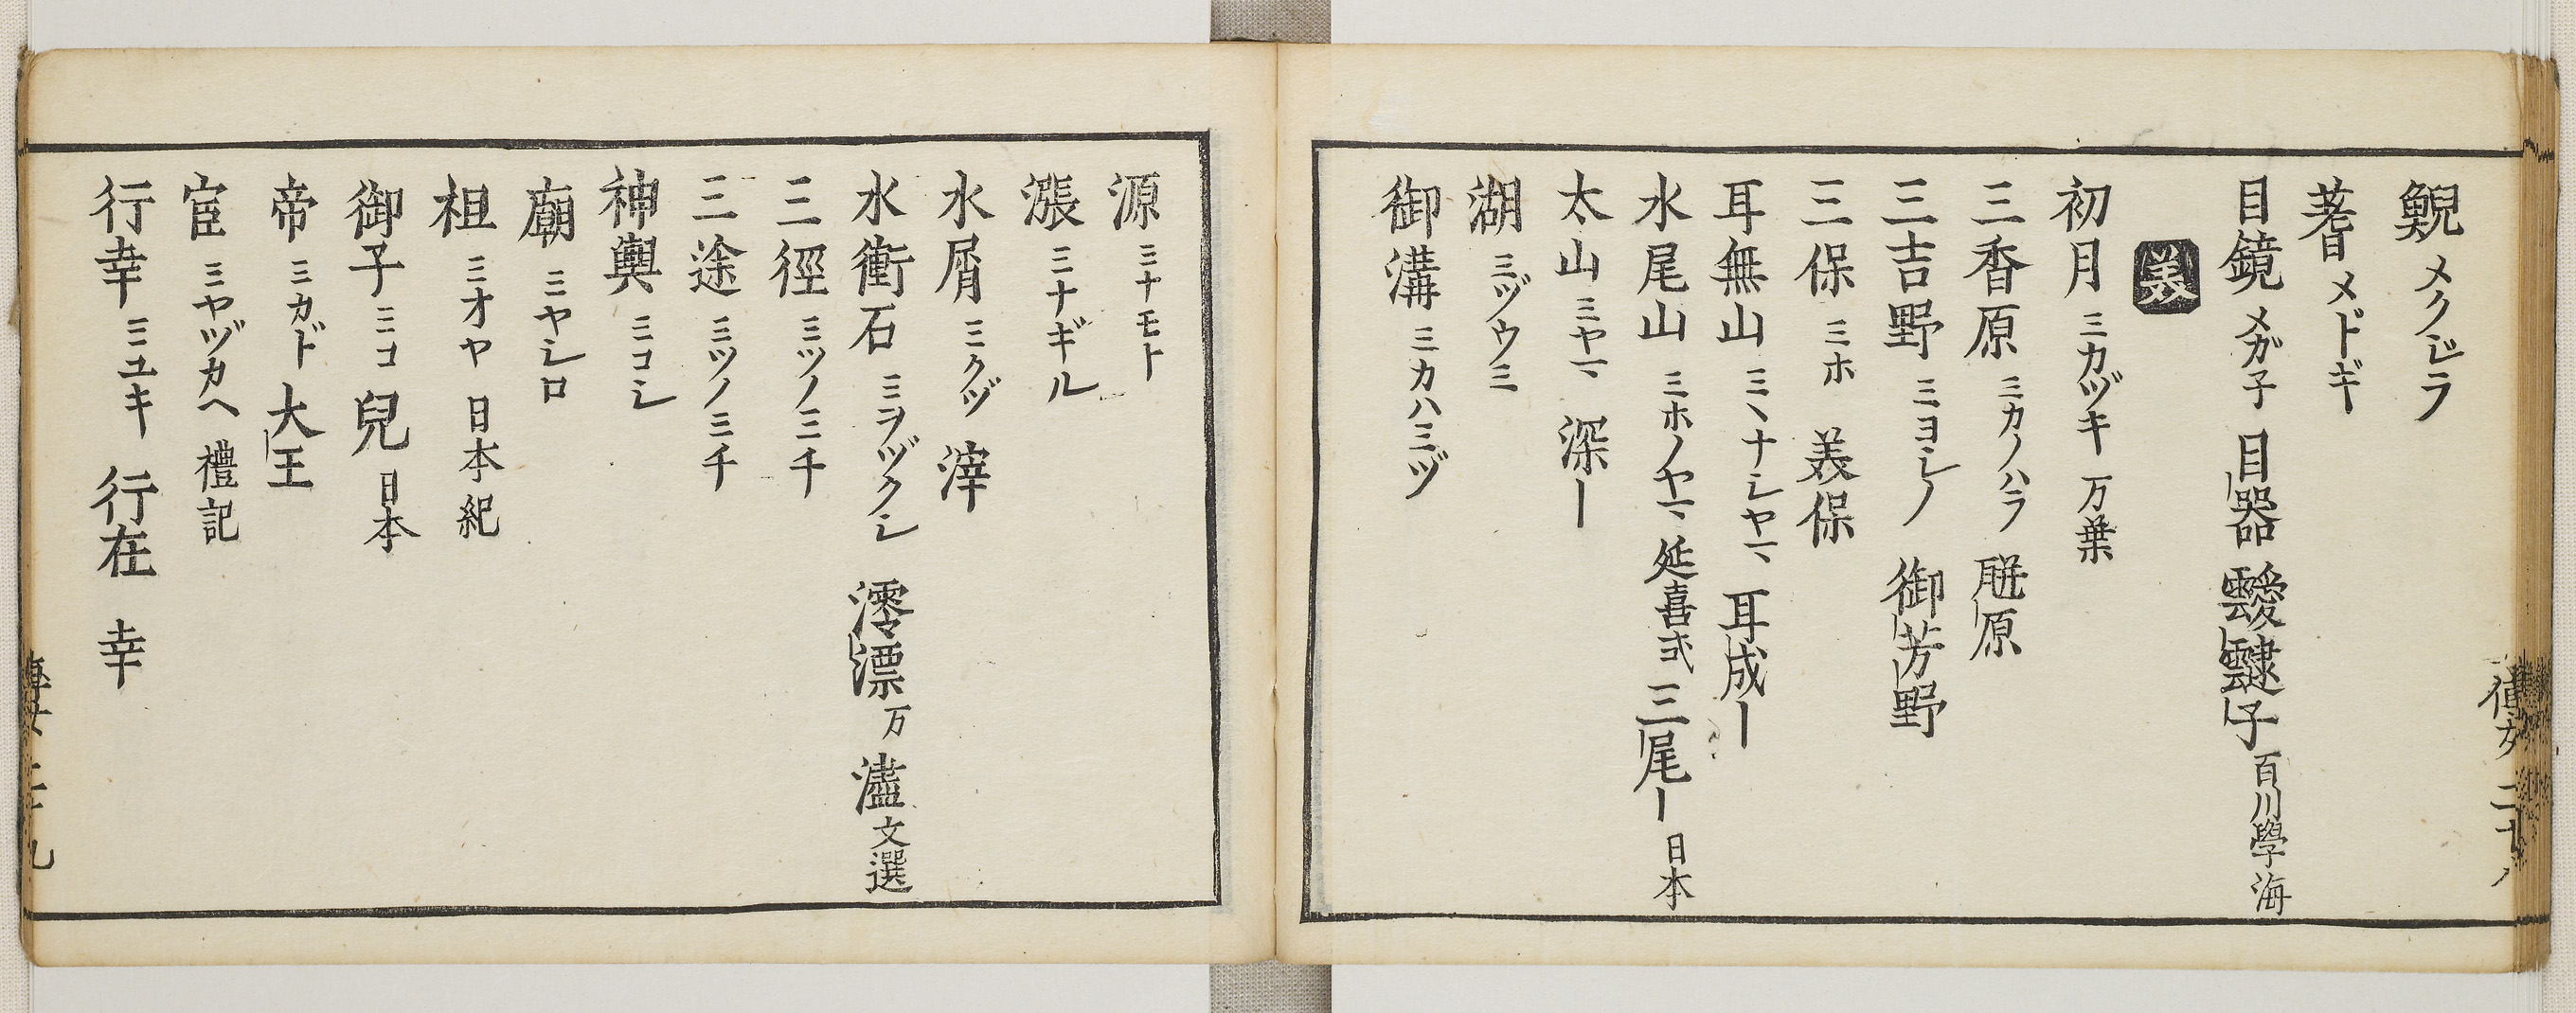 鯢 メクジラ
蓍 メドギ
目鏡 メガ子 目器 靉靆子 百川學海
美
初月 ミカヅキ 万葉
三香原 ミカノハラ 𤭖原
三吉野 ミヨシノ 御芳野
三保 ミホ 美保
耳無山 ミヽナシヤマ 耳成ー
水尾山 ミホノヤマ 延喜式 三尾ー 日本
太山 ミヤマ 深ー
湖 ミヅウミ
御溝 ミカハミヅ
源 ミナモト
漲 ミナギル
水屑 ミクヅ 滓
水衝石 ミヲヅクシ 澪漂 万 濜 文選
三徑 ミツノミチ
三途 ミツノミチ
神輿 ミコシ
廟 ミヤシロ
祖 ミオヤ 日本紀
御子 ミコ 兒 日本
帝 ミカド 大王
宦 ミヤヅカヘ 禮記
行幸 ミユキ 行在 幸